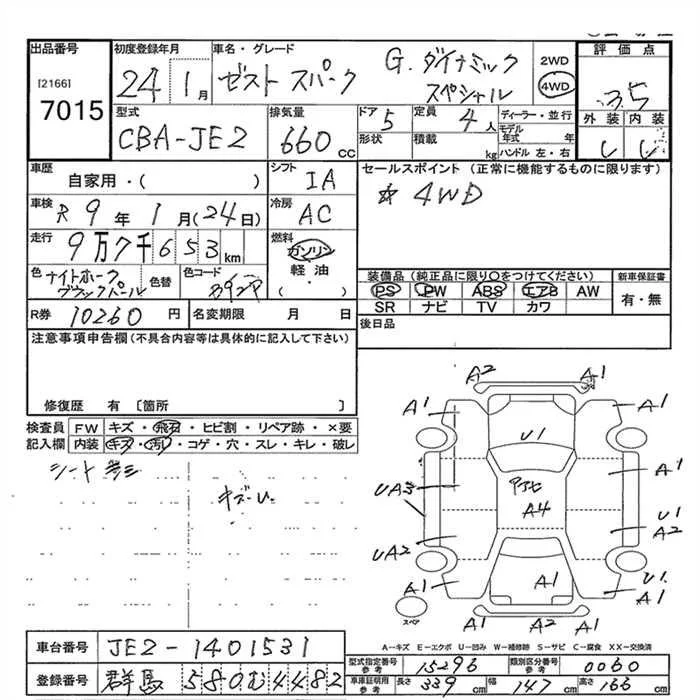 出品番号 初度登録年月 車名・グレード 評価点
[2166] 7015
24 1月 ゼスト スパーク G. ダイナミック スペシャル 2WD 4WD 3.5
型式 排気量 ドア 定員 ディーラー・並行 外装 内装
CBA-JE2 660cc 5 4人 モデル年式 年
形状 積載 kg ハンドル 左・右
車歴 シフト セールスポイント (正常に機能するものに限ります)
自家用・( ) IA
☆ 4WD
車検 R9年1月(24日) 冷房 AC
走行 9万7千653km 燃料 ガソリン
軽油
・
色 ナイトホーク ブラックパール 色替 色コード
装備品 (純正品に限り〇をつけてください) 新車保証書
PS PW ABS エアB AW 有・無
SR ナビ TV カワ
R券 10260円 名変期限 月 日 後日品
注意事項申告欄 (不具合内容等は具体的に記入して下さい)
修復歴 有 〔箇所 〕
検査員記入欄 FW キズ・飛石・ヒビ割・リペア跡・×要
内装 キズ・汚れ・コゲ・穴・スレ・キレ・破レ
シート
A2 A1
A1 A1
U1
UA3 A1
A4
U1
UA2 A2
U1
A1 A1 A1
A2 A1
スペア
A-キズ E-エクボ U-凹み W-補修跡 S-サビ C-腐食 XX-交換済
車台番号 JE2-1401531
型式指定番号 参考 15296 類別区分番号 参考 0060
登録番号 群馬 580む4482
車庫証明用 参考 長さ 339cm 幅 147cm 高さ 166cm